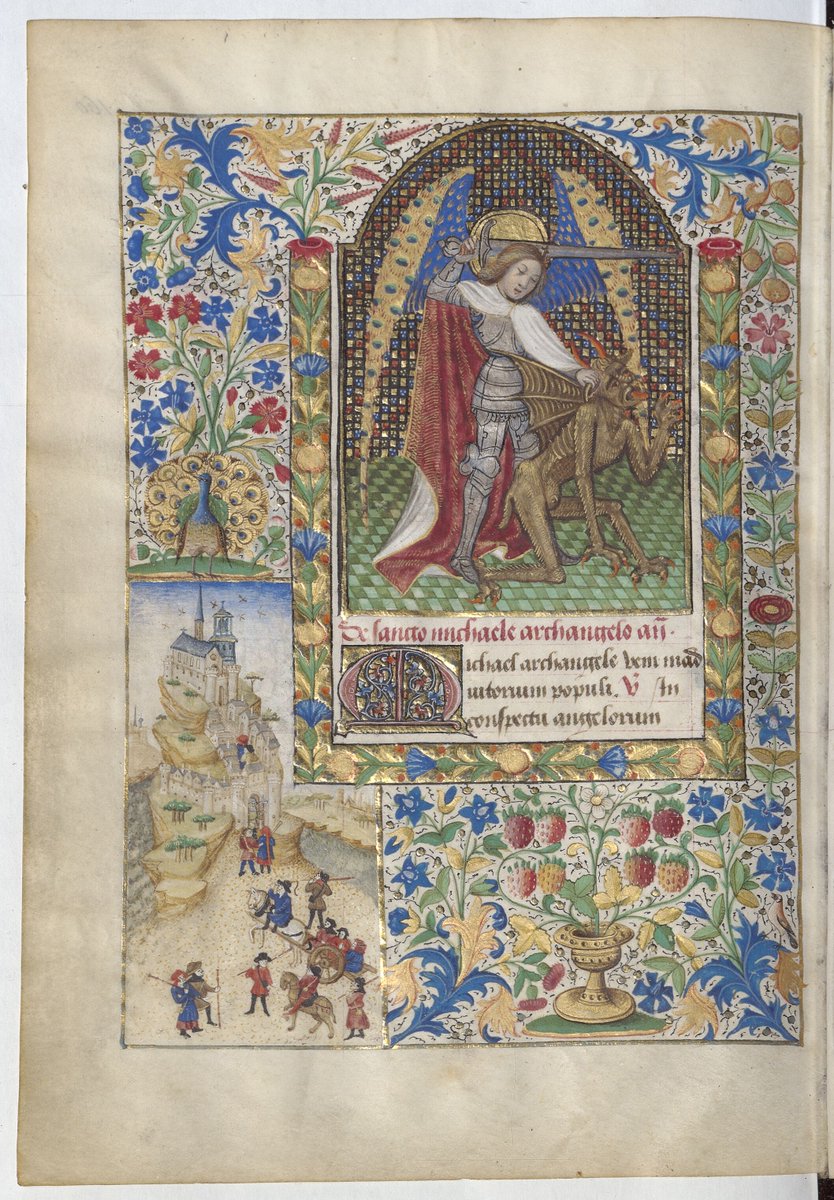 De sancto michaele archangelo añ.
Michael archangele veni in ad
iutorium populi. V̷ In
conspectu angelorum